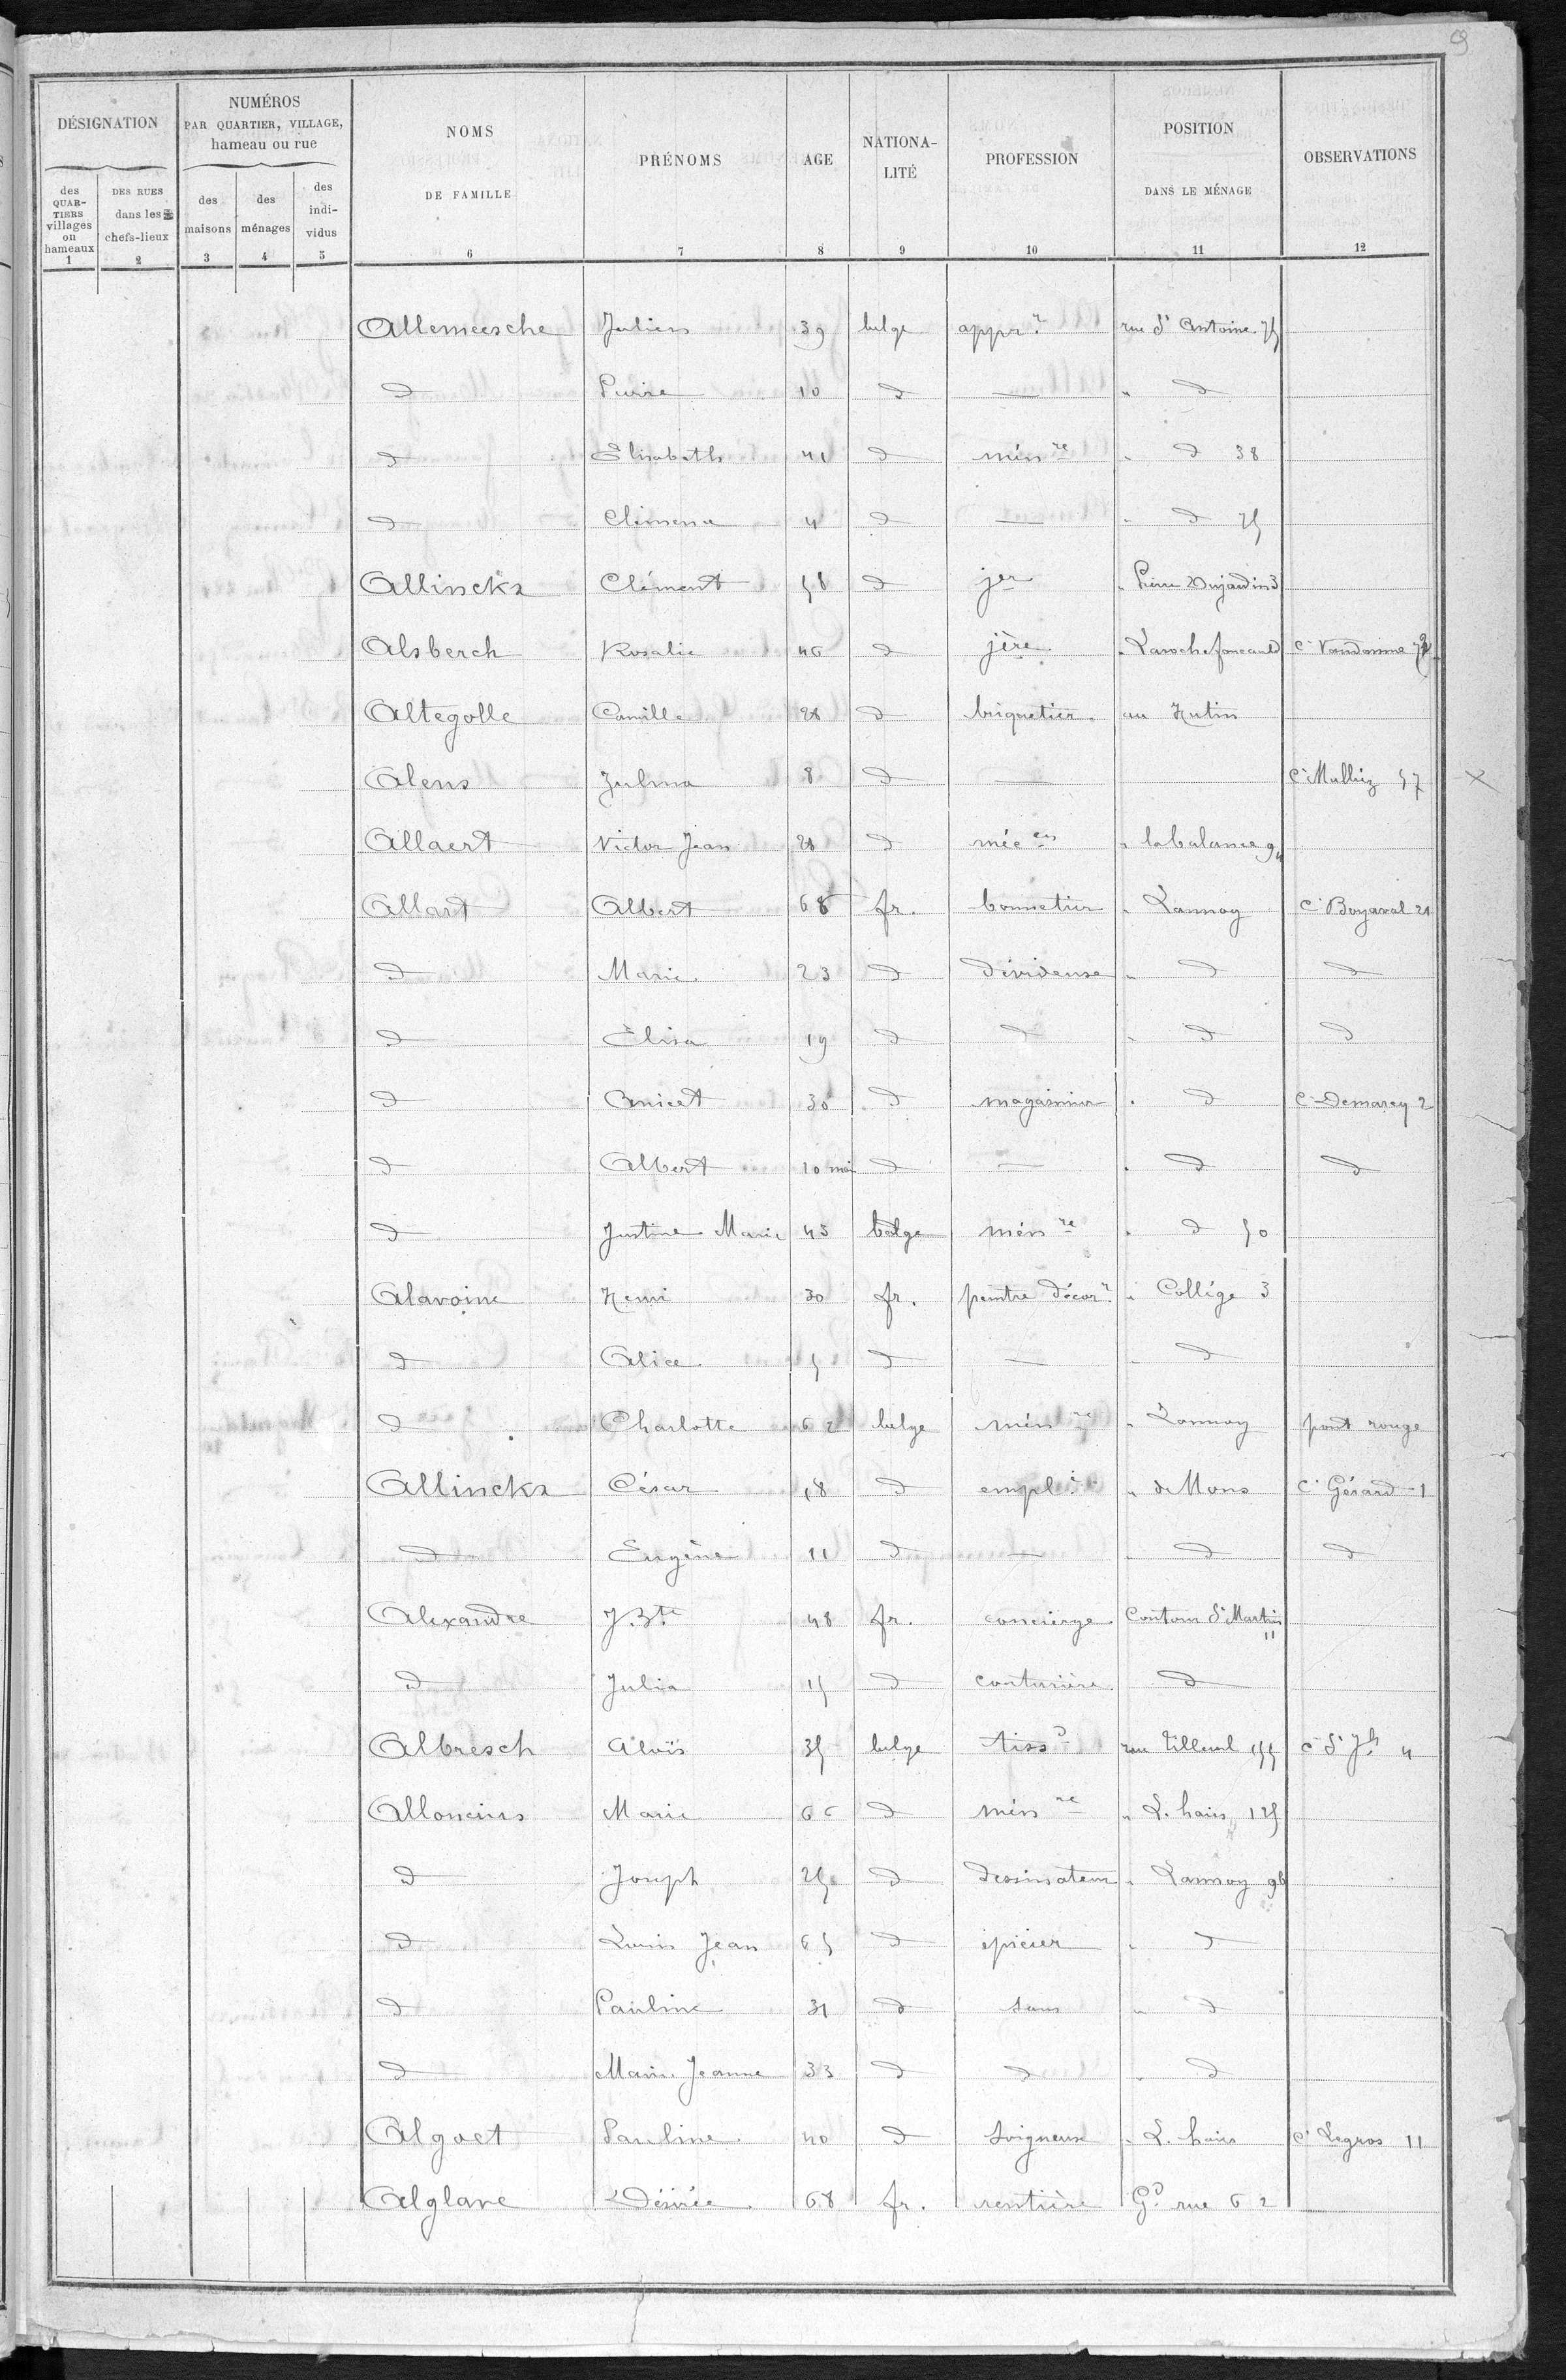 9
DÉSIGNATION
NUMÉROS
PAR QUARTIER, VILLAGE,
hameau ou rue
NOMS
DE FAMILLE
PRÉNOMS
AGE
NATIONA-
LITÉ
PROFESSION
POSITION
DANS LE MÉNAGE
OBSERVATIONS
des
QUAR-
TIERS
villages
ou
hameaux
DES RUES
dans les
chefs-lieux
des
maisons
des
ménages
des
indi-
vidus
1 2 3 4 5 6 7 8 9 10 11 12
Allemeesche Julien 39 belge appr.r rue St Antoine 75
d 10 d — " d
d Elisabeth 41 d mén re " d 38
d 4 d — " d 75
Allinckx Clément 58 d jer " Pierre Dujardin 3
Alsberch Rosalie 46 d jère " Larochefoucauld c. Vandamme
Altegolle Camille 28 d briquetier au Hutin
Alens Julma 8 d — c. Mulliez 57 ×
Allaert Victor Jean 28 d méc en " la balance 94
Allart Albert 68 fr. bonnetier " Lannoy c. Boyaval 21
d Marie 23 d dévideuse " d d
d Elisa 19 d d " d d
d Anicet 30 d magasinier " d c. Demarcy 2
d Albert 10 moi d — " d d
d Justine Marie 45 belge mén re " d 50
Alavoine Henri 30 fr. peintre décor.r " Collége 3
d Alice 5 d — " d
d Charlotte 62 belge mén re " Lannoy pont rouge
Allinckx César 18 d empl.é " de Mons c. Gérard 1
d Eugène 11 d — " d d
Alexandre J. Bte 48 fr. concierge Contour St Martin 11
d Julia 15 d couturière d
Albresch Aloïs 35 belge tiss d rue Tilleul 155 c. St Jh 4
Alloncius Marie 66 d mén re " L. haies 125
d Joseph 25 d dessinateur " Lannoy 96
d Louis Jean 65 d épicier " d
d Pauline 31 d sans " d
d Marie Jeanne 33 d d " d
Algoet Pauline 40 d soigneuse " L. haies c. Legros 11
Alglave Désirée 68 fr. rentière Gde rue 62